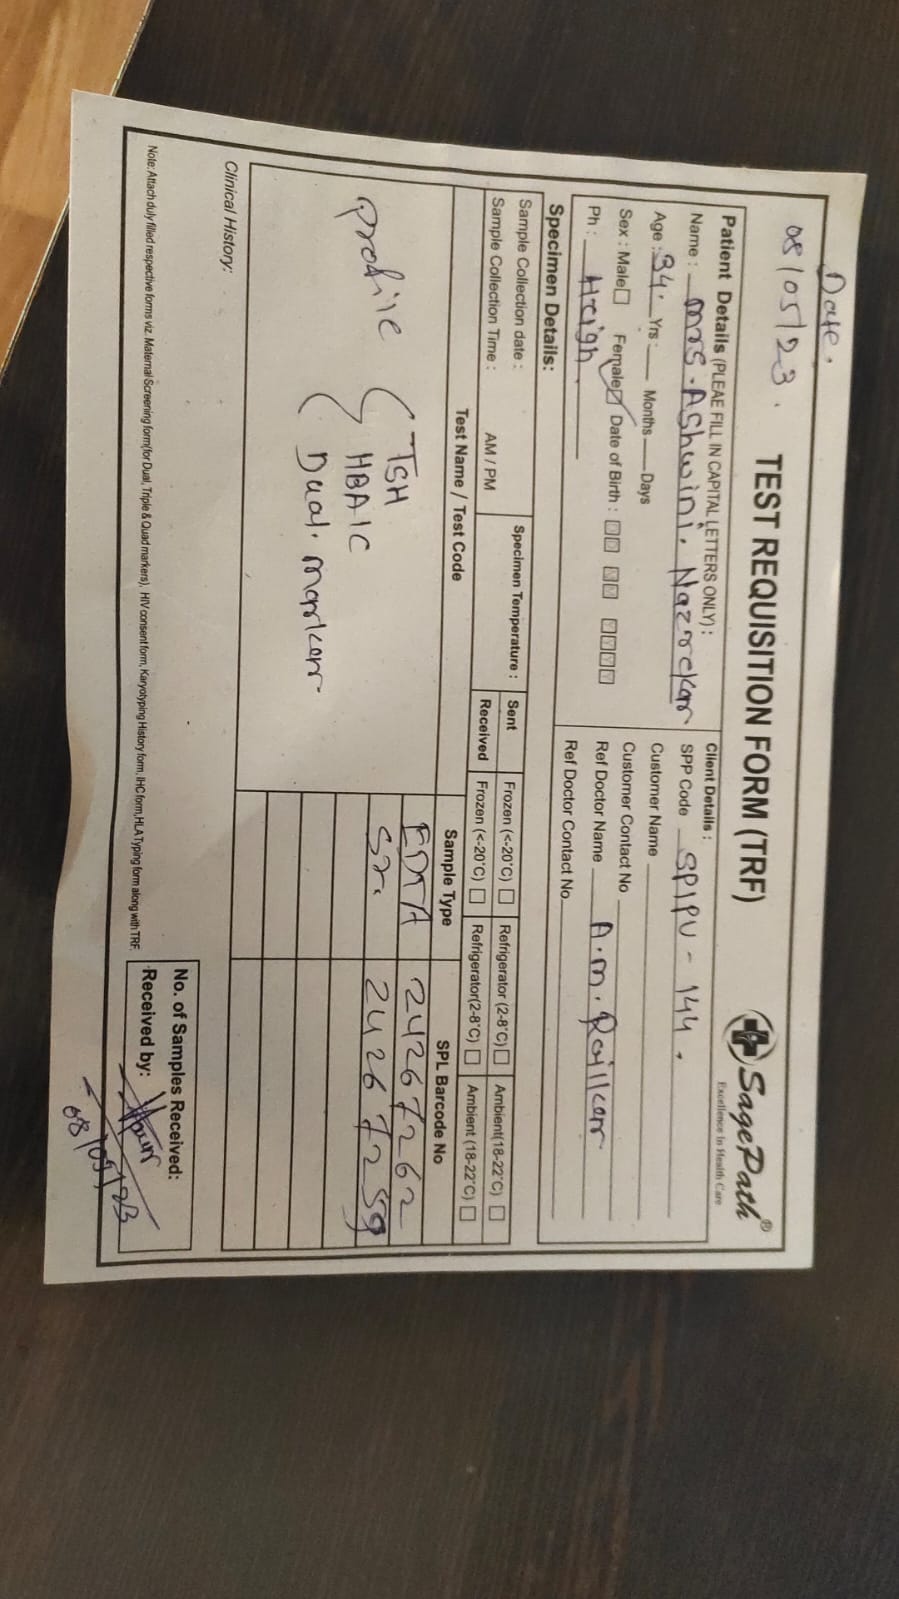 Date.
08/05/23.
TEST REQUISITION FORM (TRF)
SagePath®
Excellence In Health Care
Patient Details (PLEAE FILL IN CAPITAL LETTERS ONLY) :
Name : mrs. Ashwini. Nazrekar
Age : 34. Yrs : Months Days
Sex : Male Female Date of Birth : D D M M Y Y Y Y
Ph :
Client Details :
SPP Code SP1PU - 144.
Customer Name
Customer Contact No
Ref Doctor Name A.m.
Ref Doctor Contact No.
Specimen Details:
Sample Collection date :
Sample Collection Time : AM / PM
Specimen Temperature :
Sent Frozen (<-20°C) Refrigerator (2-8°C) Ambient(18-22°C)
Received Frozen (<-20°C) Refrigerator(2-8°C) Ambient (18-22°C)
Test Name / Test Code Sample Type SPL Barcode No
TSH EDTA 24267262
profile HBA1C Sr. 24267259
Dual. marker
Clinical History:
No. of Samples Received:
Received by:
08/05/23
Note: Attach duly filled respective forms viz. Maternal Screening form(for Dual, Triple & Quad markers), HIV consent form, Karyotyping History form, IHC form, HLA Typing form along with TRF.